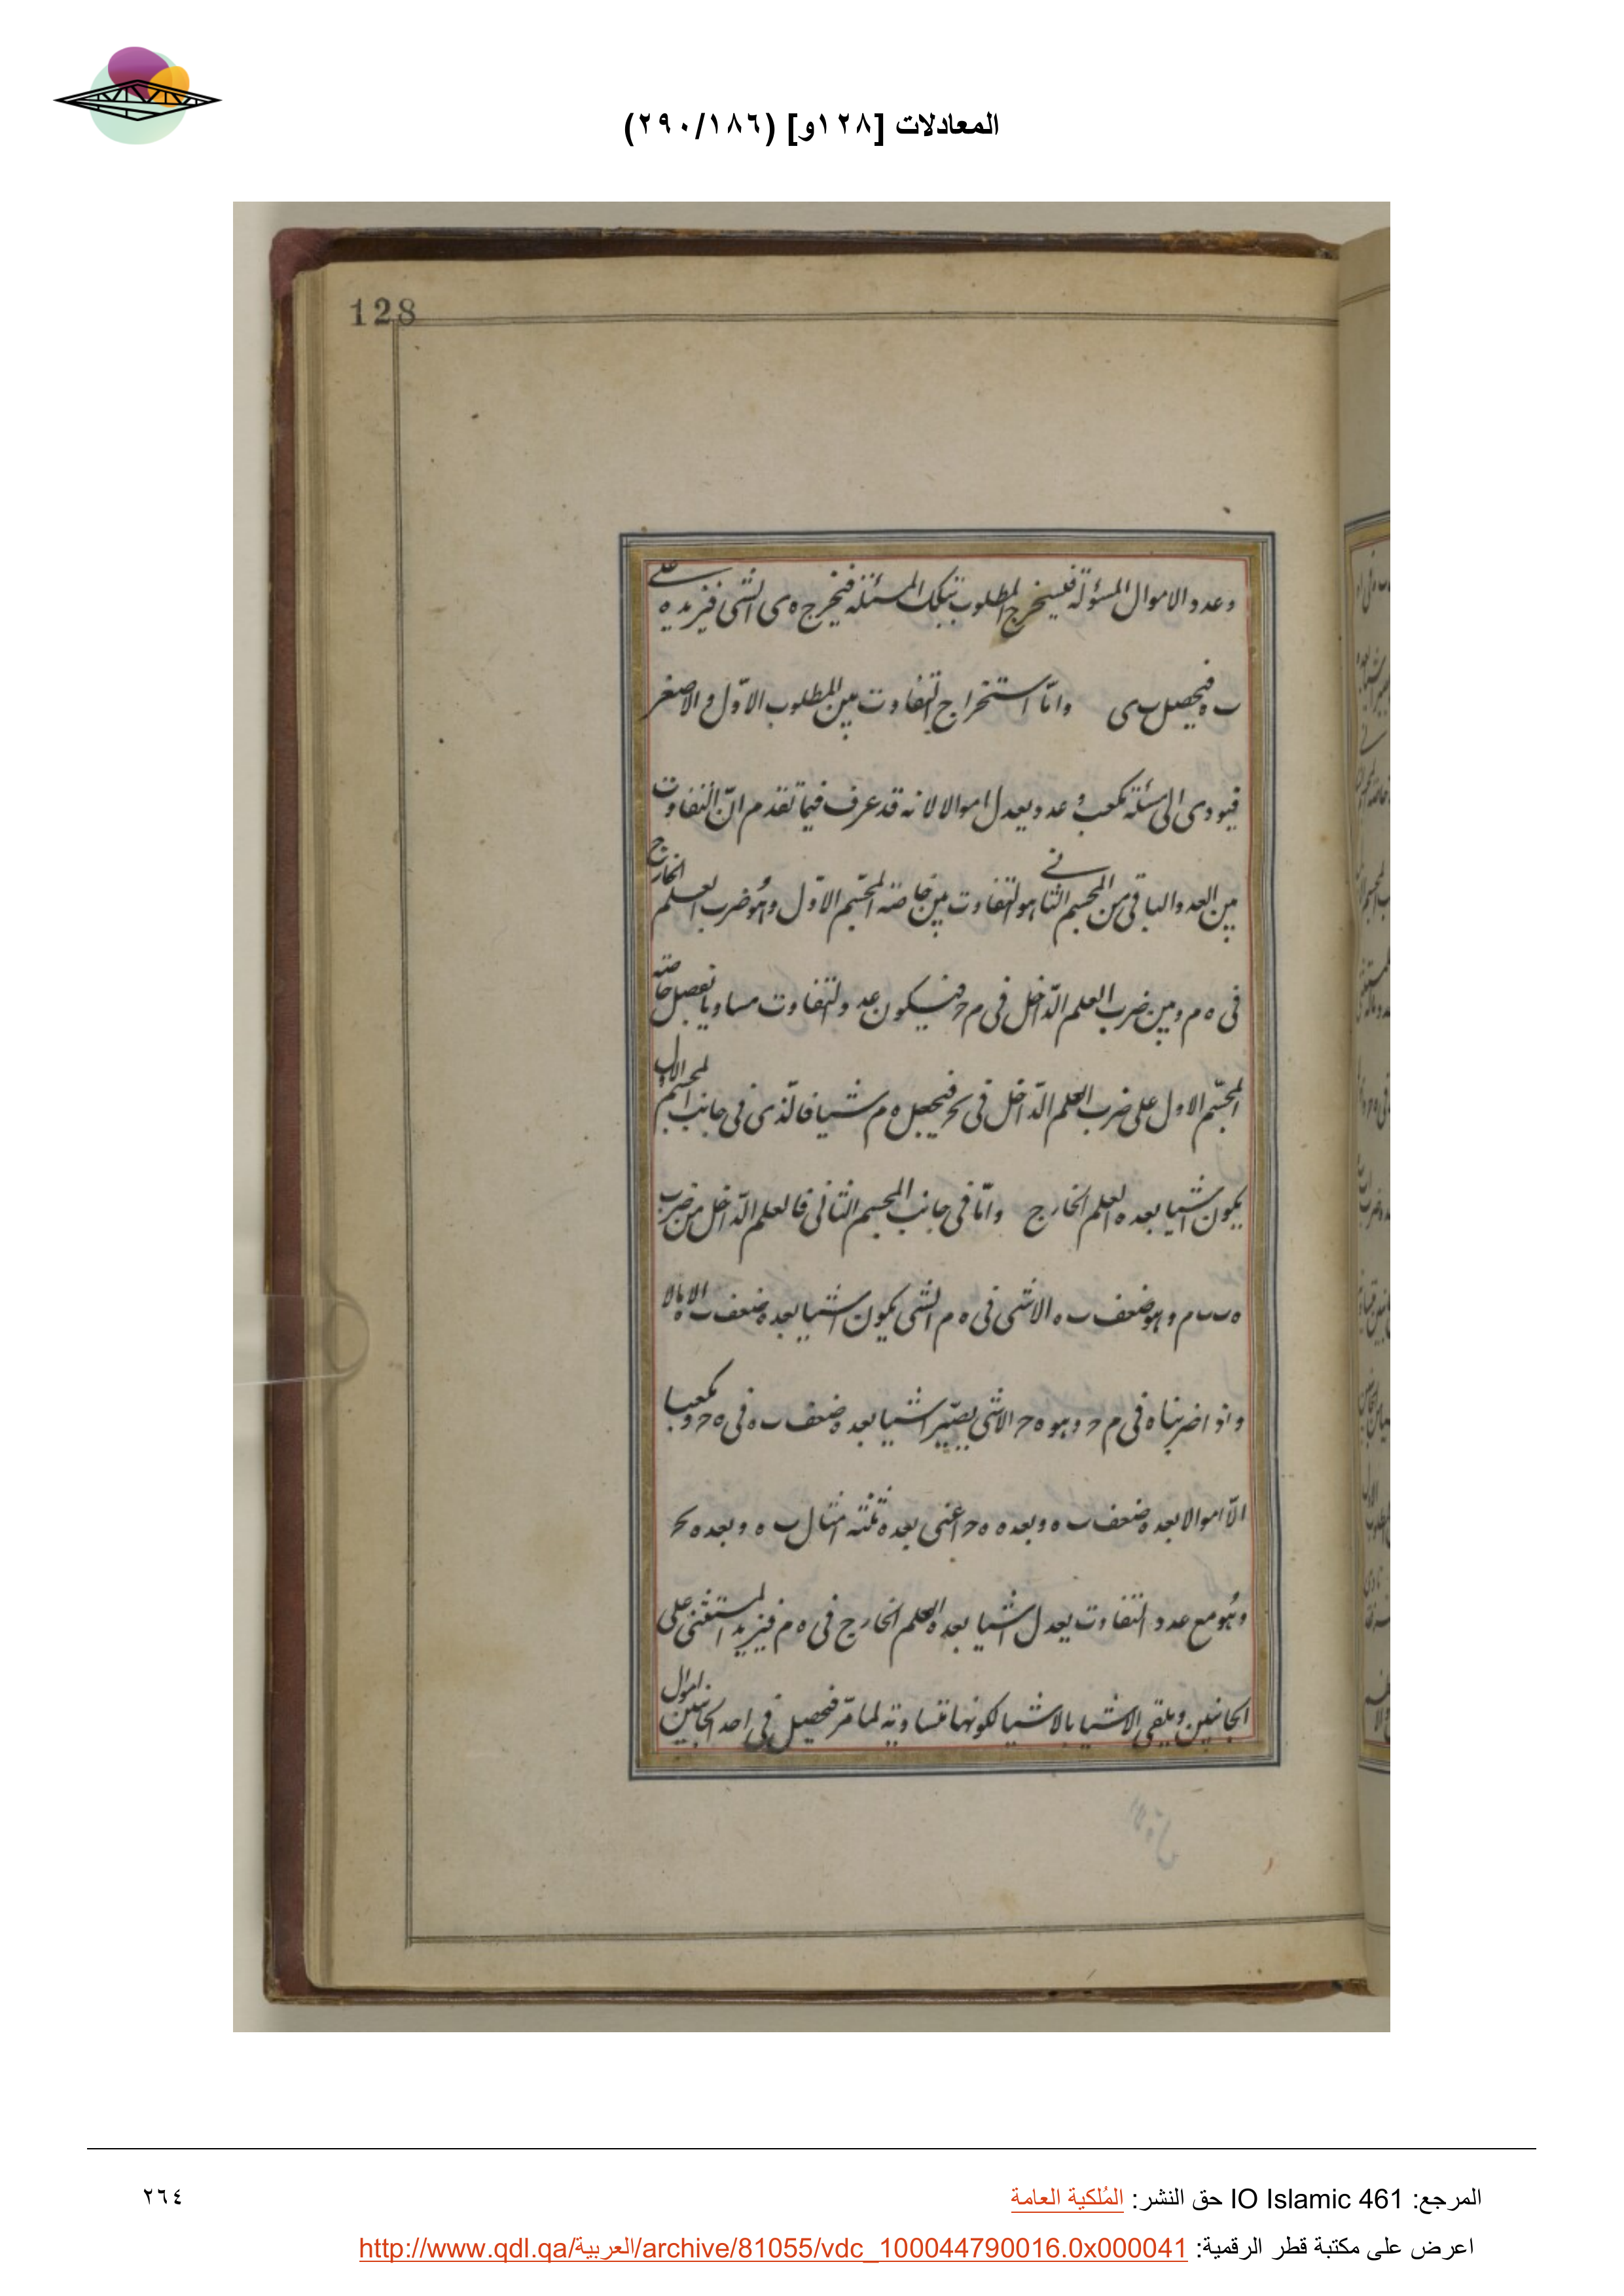 المعادلات [١٢٨و] (٢٩٠/١٨٦)
128
وعدد الاموال المسؤلة فليستخرج المطلوب بتلك المسئلة فيخرج ه ى الشى فنزيده على
ب ه فيحصل ب ى وامّا استخراج التفاوت بين المطلوب الاوّل والاصغر
فيودى الى مسئلة مكعب وعدد يعدل اموالا لانه قد عرف فيما تقدم انّ التفاوت
بين العدد والباقى من المجسم الثانى هو التفاوت بين خاصّة المجسّم الاوّل وهُو ضرب العلم الخارج
فى ه م وبين ضرب العلم الدّاخل فى م ح فيكون عدد التفاوت مساويا لفضل خاصّة
المجسّم الاول على ضرب العلم الدّاخل فى م ح فيجعل ه م شيا فالّذى فى جانب المجسّم الاول
يكون اشيا بعدة العلم الخارج وامّا فى جانب المجسم الثانى فالعلم الدّاخل من ضرب
ه ب ب م وهو ضعف ب ه الا شى فى ه م الشى يكون اشيا بعدة ضعف ب ه الا مالا
واذا ضربناه فى م ح وهو ه ح الا شى يصيّر اشيا بعدة ضعف ب ه فى ه ح ومكعبا
الّا اموالا بعدة ضعف ب ه وبعدة ه ح اعنى بعدة ثلثة امثال ب ه وبعدة
وهُو مع عدد التفاوت يعدل اشيا بعدة العلم الخارج فى ه م فنزيد المستثنى على
الجانبين ويلقى الاشيا بالاشيا لكونها متساوية لما مرّ فيحصل فى احد الجانبين اموال
المرجع: IO Islamic 461 حق النشر: المُلكية العامة
٢٦٤
اعرض على مكتبة قطر الرقمية: http://www.qdl.qa/العربية/archive/81055/vdc_100044790016.0x000041